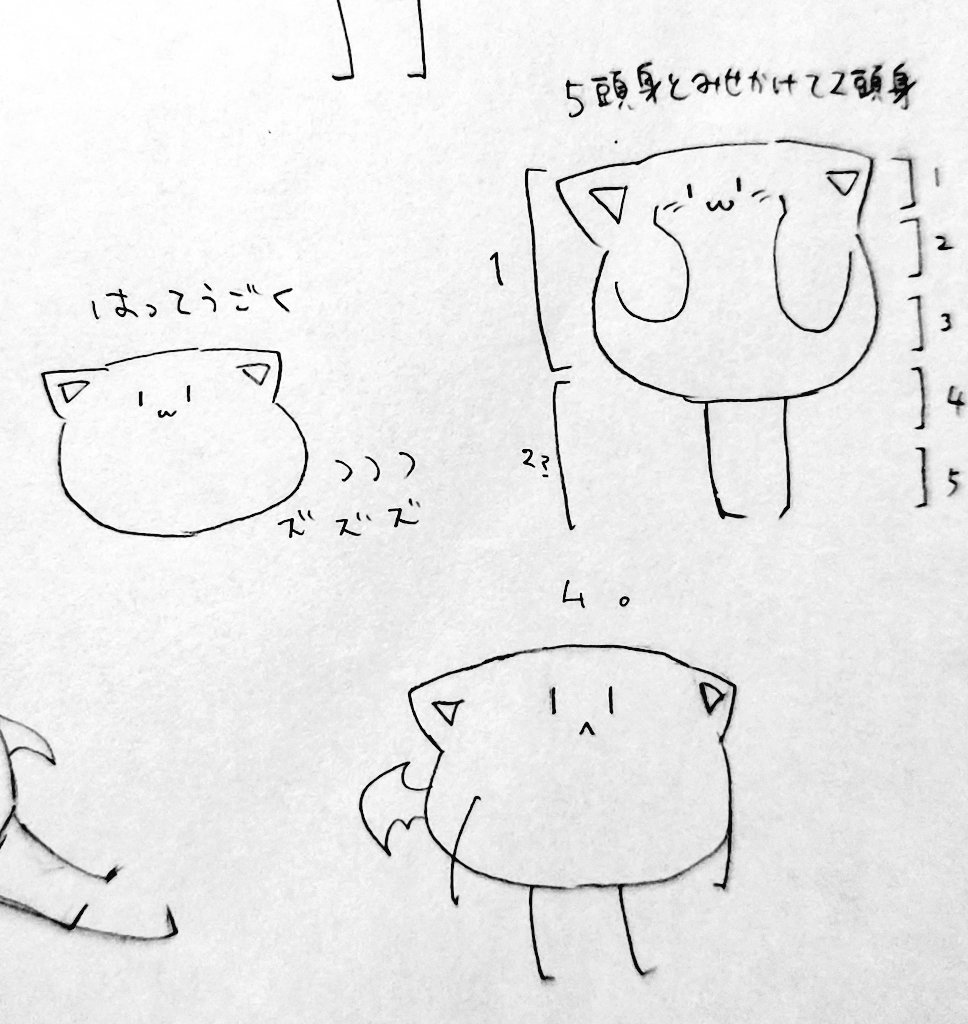 5頭身とみせかけて2頭身
1
2?
1
2
3
4
5
はってうごく
ズズズ
4。